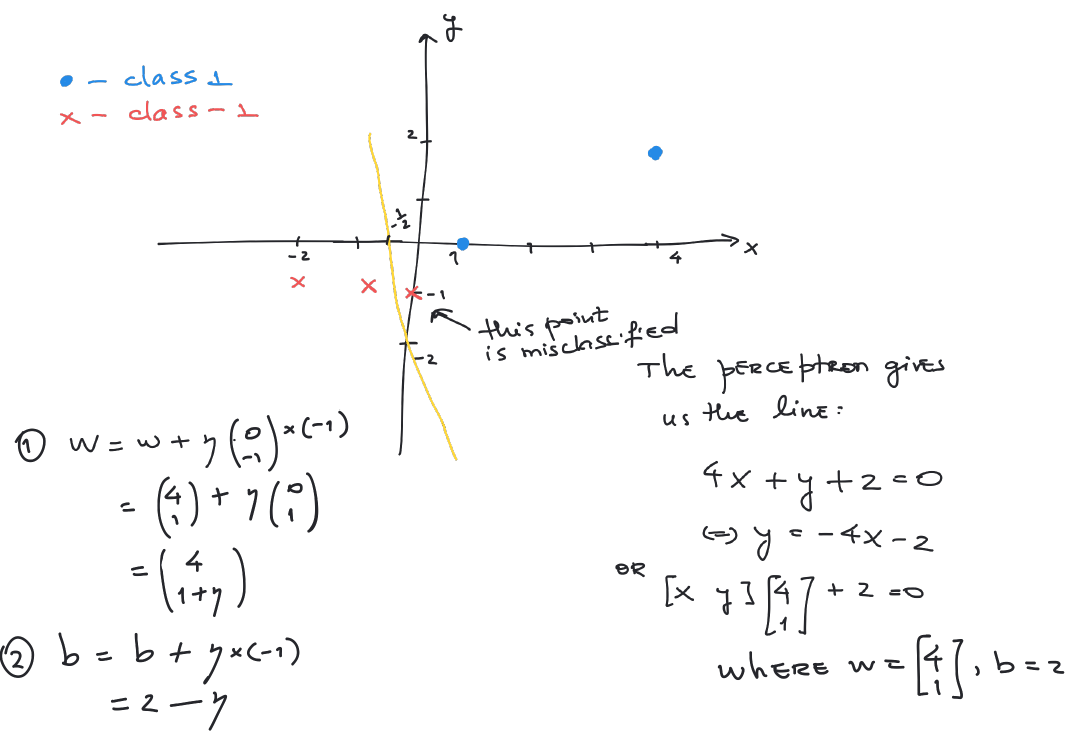 y
• – class 1
× – class – 1
2
-1/2
-2
1
4
x
-1
this point
is misclassified
-2
The perceptron gives
us the line:
4x + y + 2 = 0
(=) y = -4x - 2
OR [x y] [4 1] + 2 = 0
where w = [4 1], b = 2
① w = w + η (0 -1) × (-1)
= (4 1) + η (0 1)
= (4 1+η)
② b = b + η × (-1)
= 2 – η